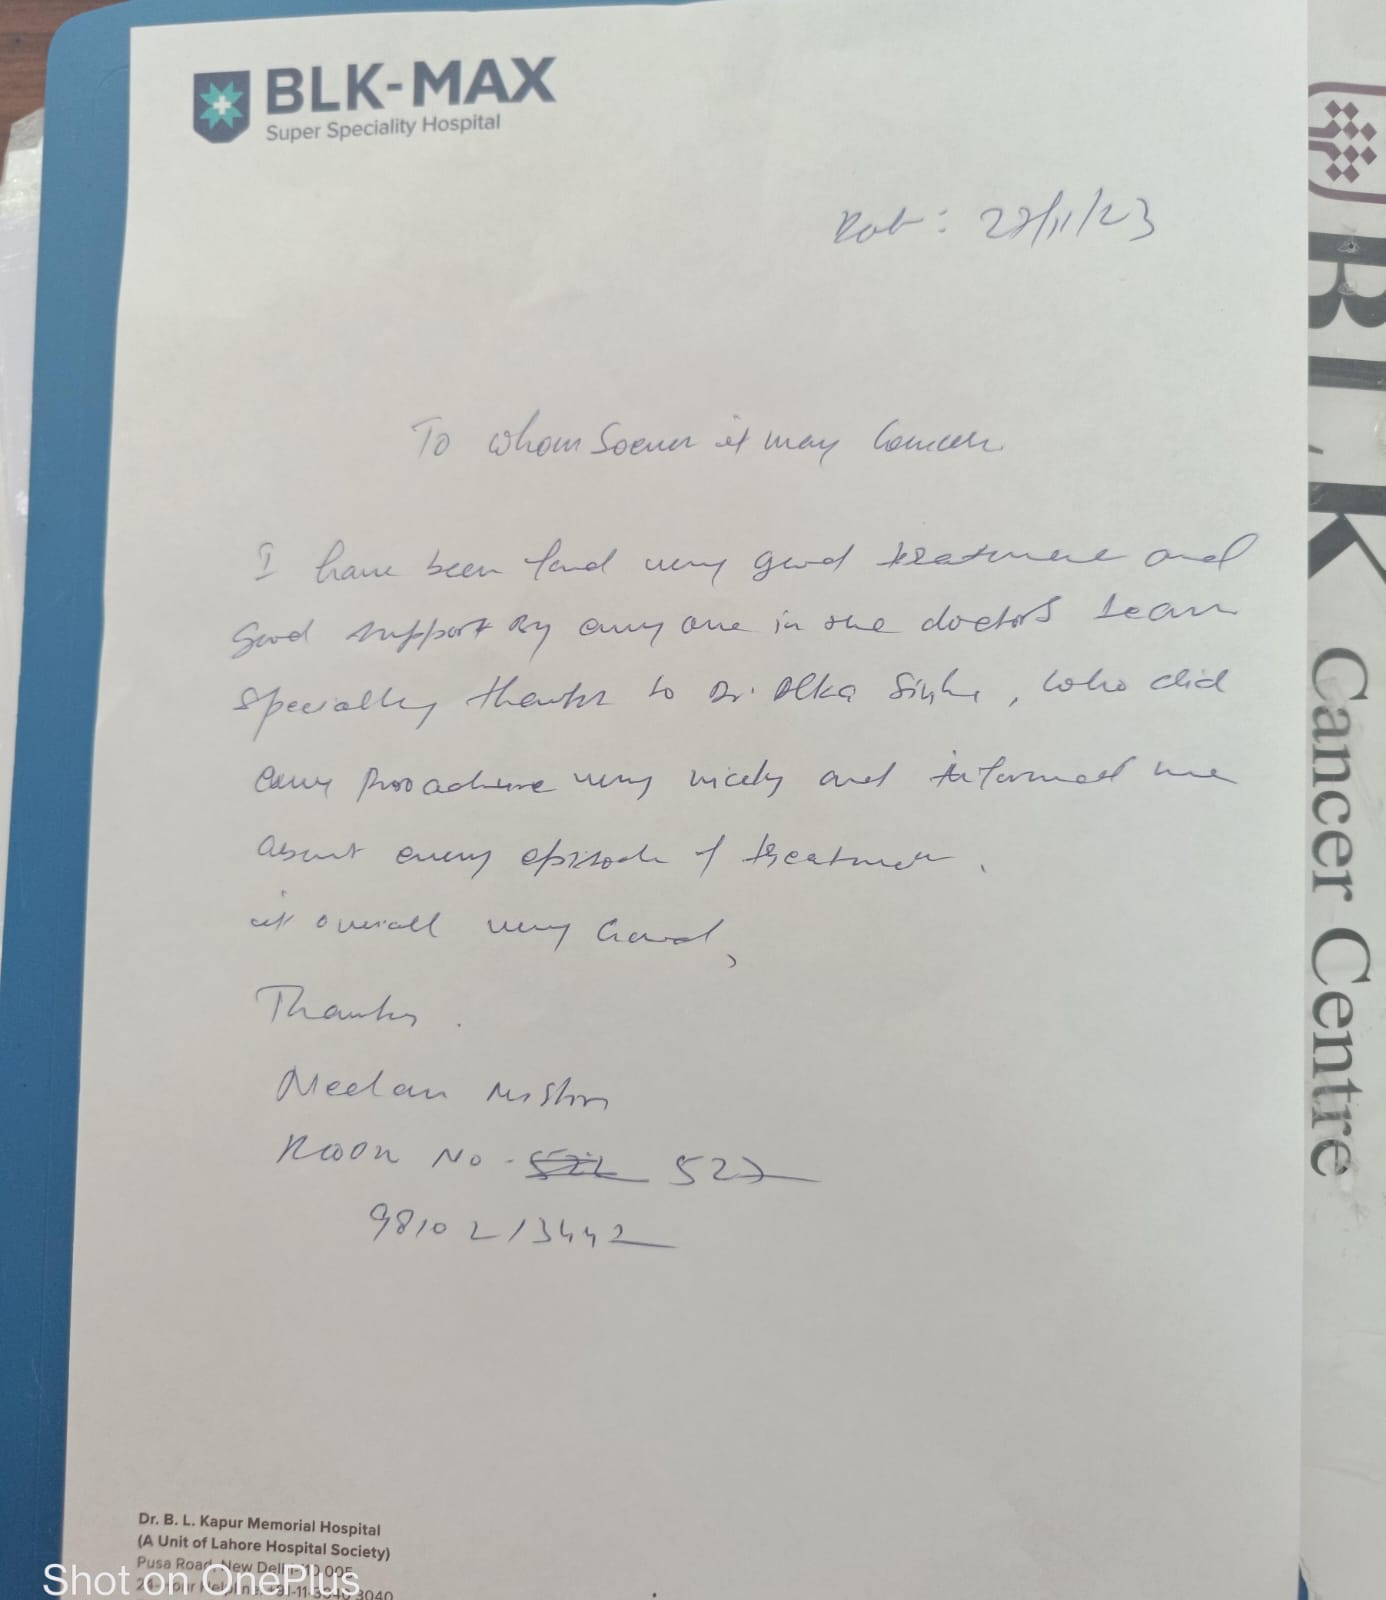 BLK-MAX
Super Speciality Hospital
Date: 27/11/23
To whom Soever it may Concern
I have been found very good treatment and
Good support By every one in the doctors team
Specially thanks to Dr. Alka Sinha, who did
every Procedure very nicely and informed me
about every episode of treatment.
it overall very Good,
Thanks.
Neelam Mishra
Room No. 527
9810213442
Dr. B. L. Kapur Memorial Hospital
(A Unit of Lahore Hospital Society)
Pusa Road, New Delhi-110 005
3040
Shot on OnePlus
BLK Cancer Centre